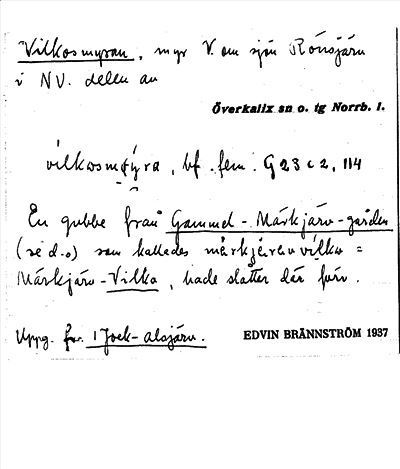 Vilkosmyran, myr V. om sjön Rönsjärv
i NV. delen av
Överkalix sn o. tg Norrb. l.
vilkosmýra, bf. fem. G 23 c 2, 114
En gubbe från Gammel-Märkjärv-gården
(se d.o) som kallades märkjärvvilka =
Märkjärv-Vilka, hade slåtter där förr.
Uppg. fr. 1 Jock-alsjärv.
EDVIN BRÄNNSTRÖM 1937